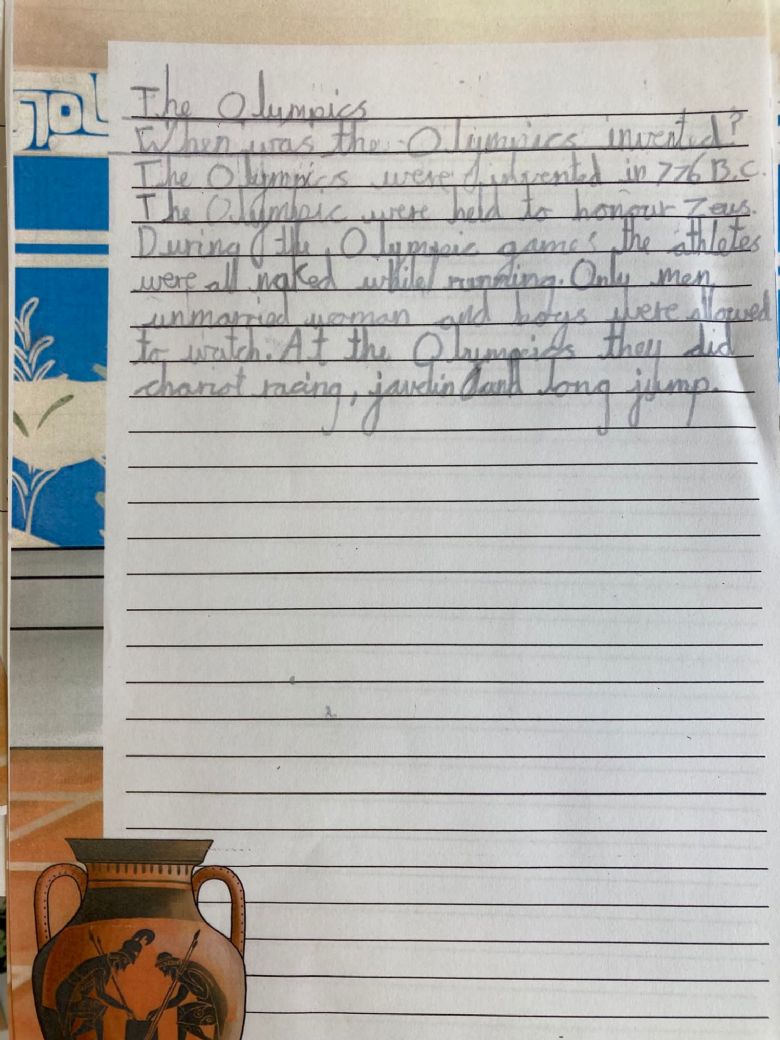 The Olympics
When was the Olympics invented?
The Olympics were invented in 776 B.C.
The Olympic were held to honour Zeus.
During the Olympic games the athletes
were all naked while running. Only men,
unmarried woman and boys were allowed
to watch. At the Olympics they did
chariot racing, javelin and long jump.